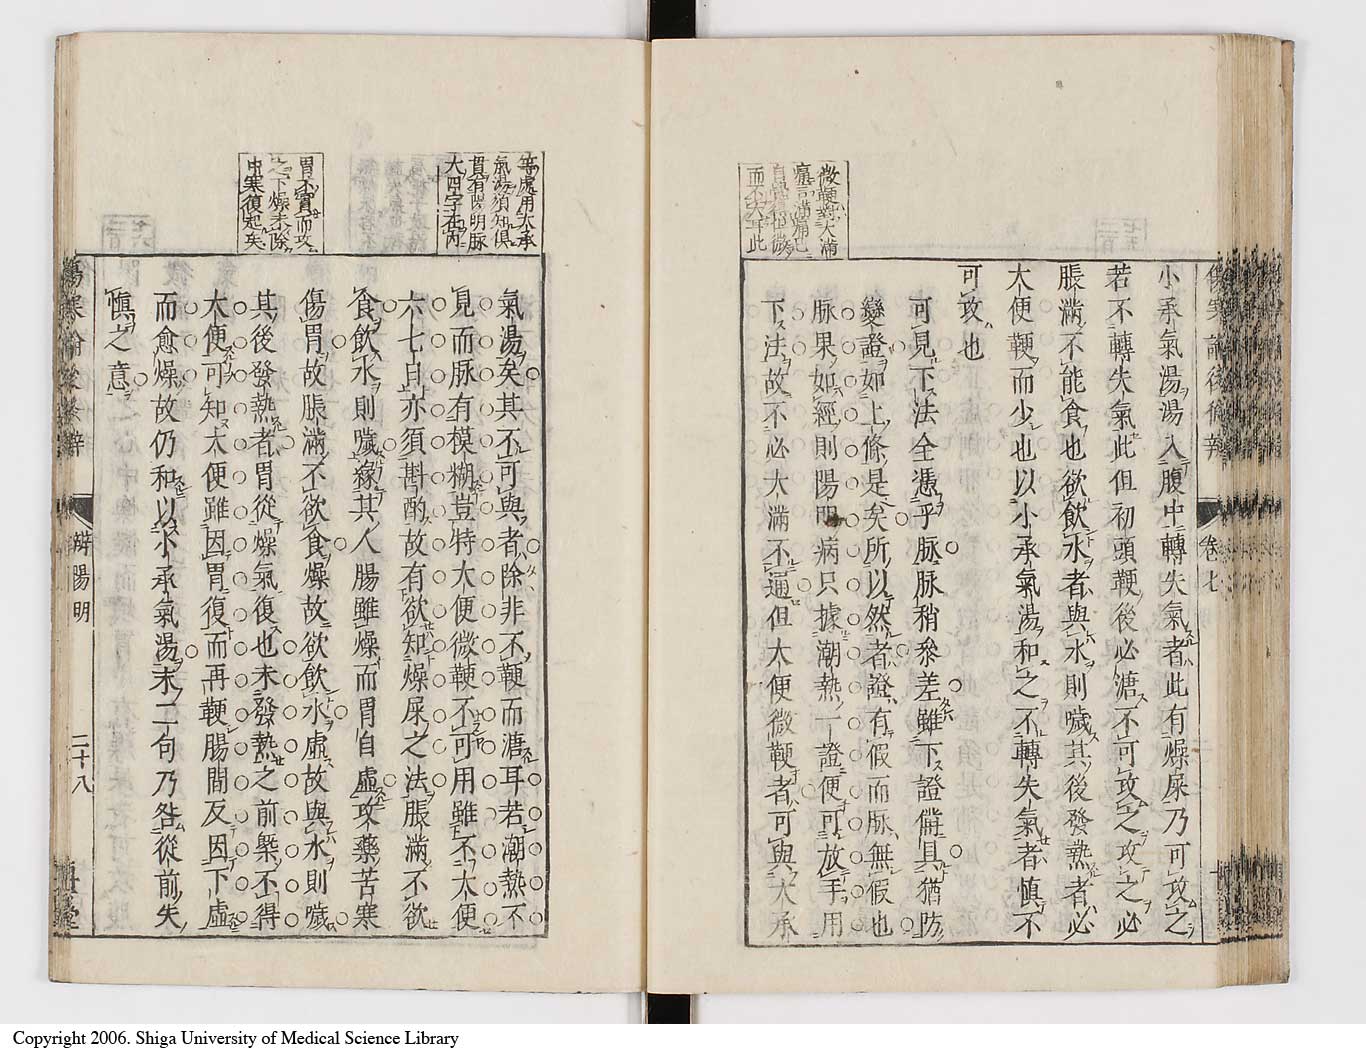 微鞕對大滿
而不大耳此
傷寒論後條辨
卷七
小承氣湯湯入腹中轉失氣者此有燥屎乃可攻之
若不轉失氣此但初頭鞕後必溏不可攻之攻之必
脹滿不能食也欲飲水者與水則噦其後發熱者必
大便鞕而少也以小承氣湯和之不轉失氣者慎不
可攻也
可見下法全憑乎脉脉稍參差雖下證備具猶防
變證如上條是矣所以然者證有假而脉無假也
脉果如經則陽明病只據潮熱一證便可放手用
下法故不必大滿不通但大便微鞕者可與大承
等處用大承
氣湯須知俱
貫有陽明脉
大四字在內
胃不實而攻
之下燥未除
中寒復起矣
氣湯矣其不可與者除非不鞕而溏耳若潮熱不
見而脉有模糊豈特大便微鞕不可用雖不大便
六七日亦須斟酌故有欲知燥屎之法脹滿不欲
食飲水則噦緣其人腸雖燥而胃自虛攻藥苦寒
傷胃故脹滿不欲食燥故欲飲水虛故與水則噦
其後發熱者胃從燥氣復也未發熱之前槩不得
大便可知大便雖因胃復而再鞕腸間反因下虛
而愈燥故仍和以小承氣湯末二句乃咎從前失
慎之意
傷寒論後條辨
辨陽明
二十八
Copyright 2006. Shiga University of Medical Science Library